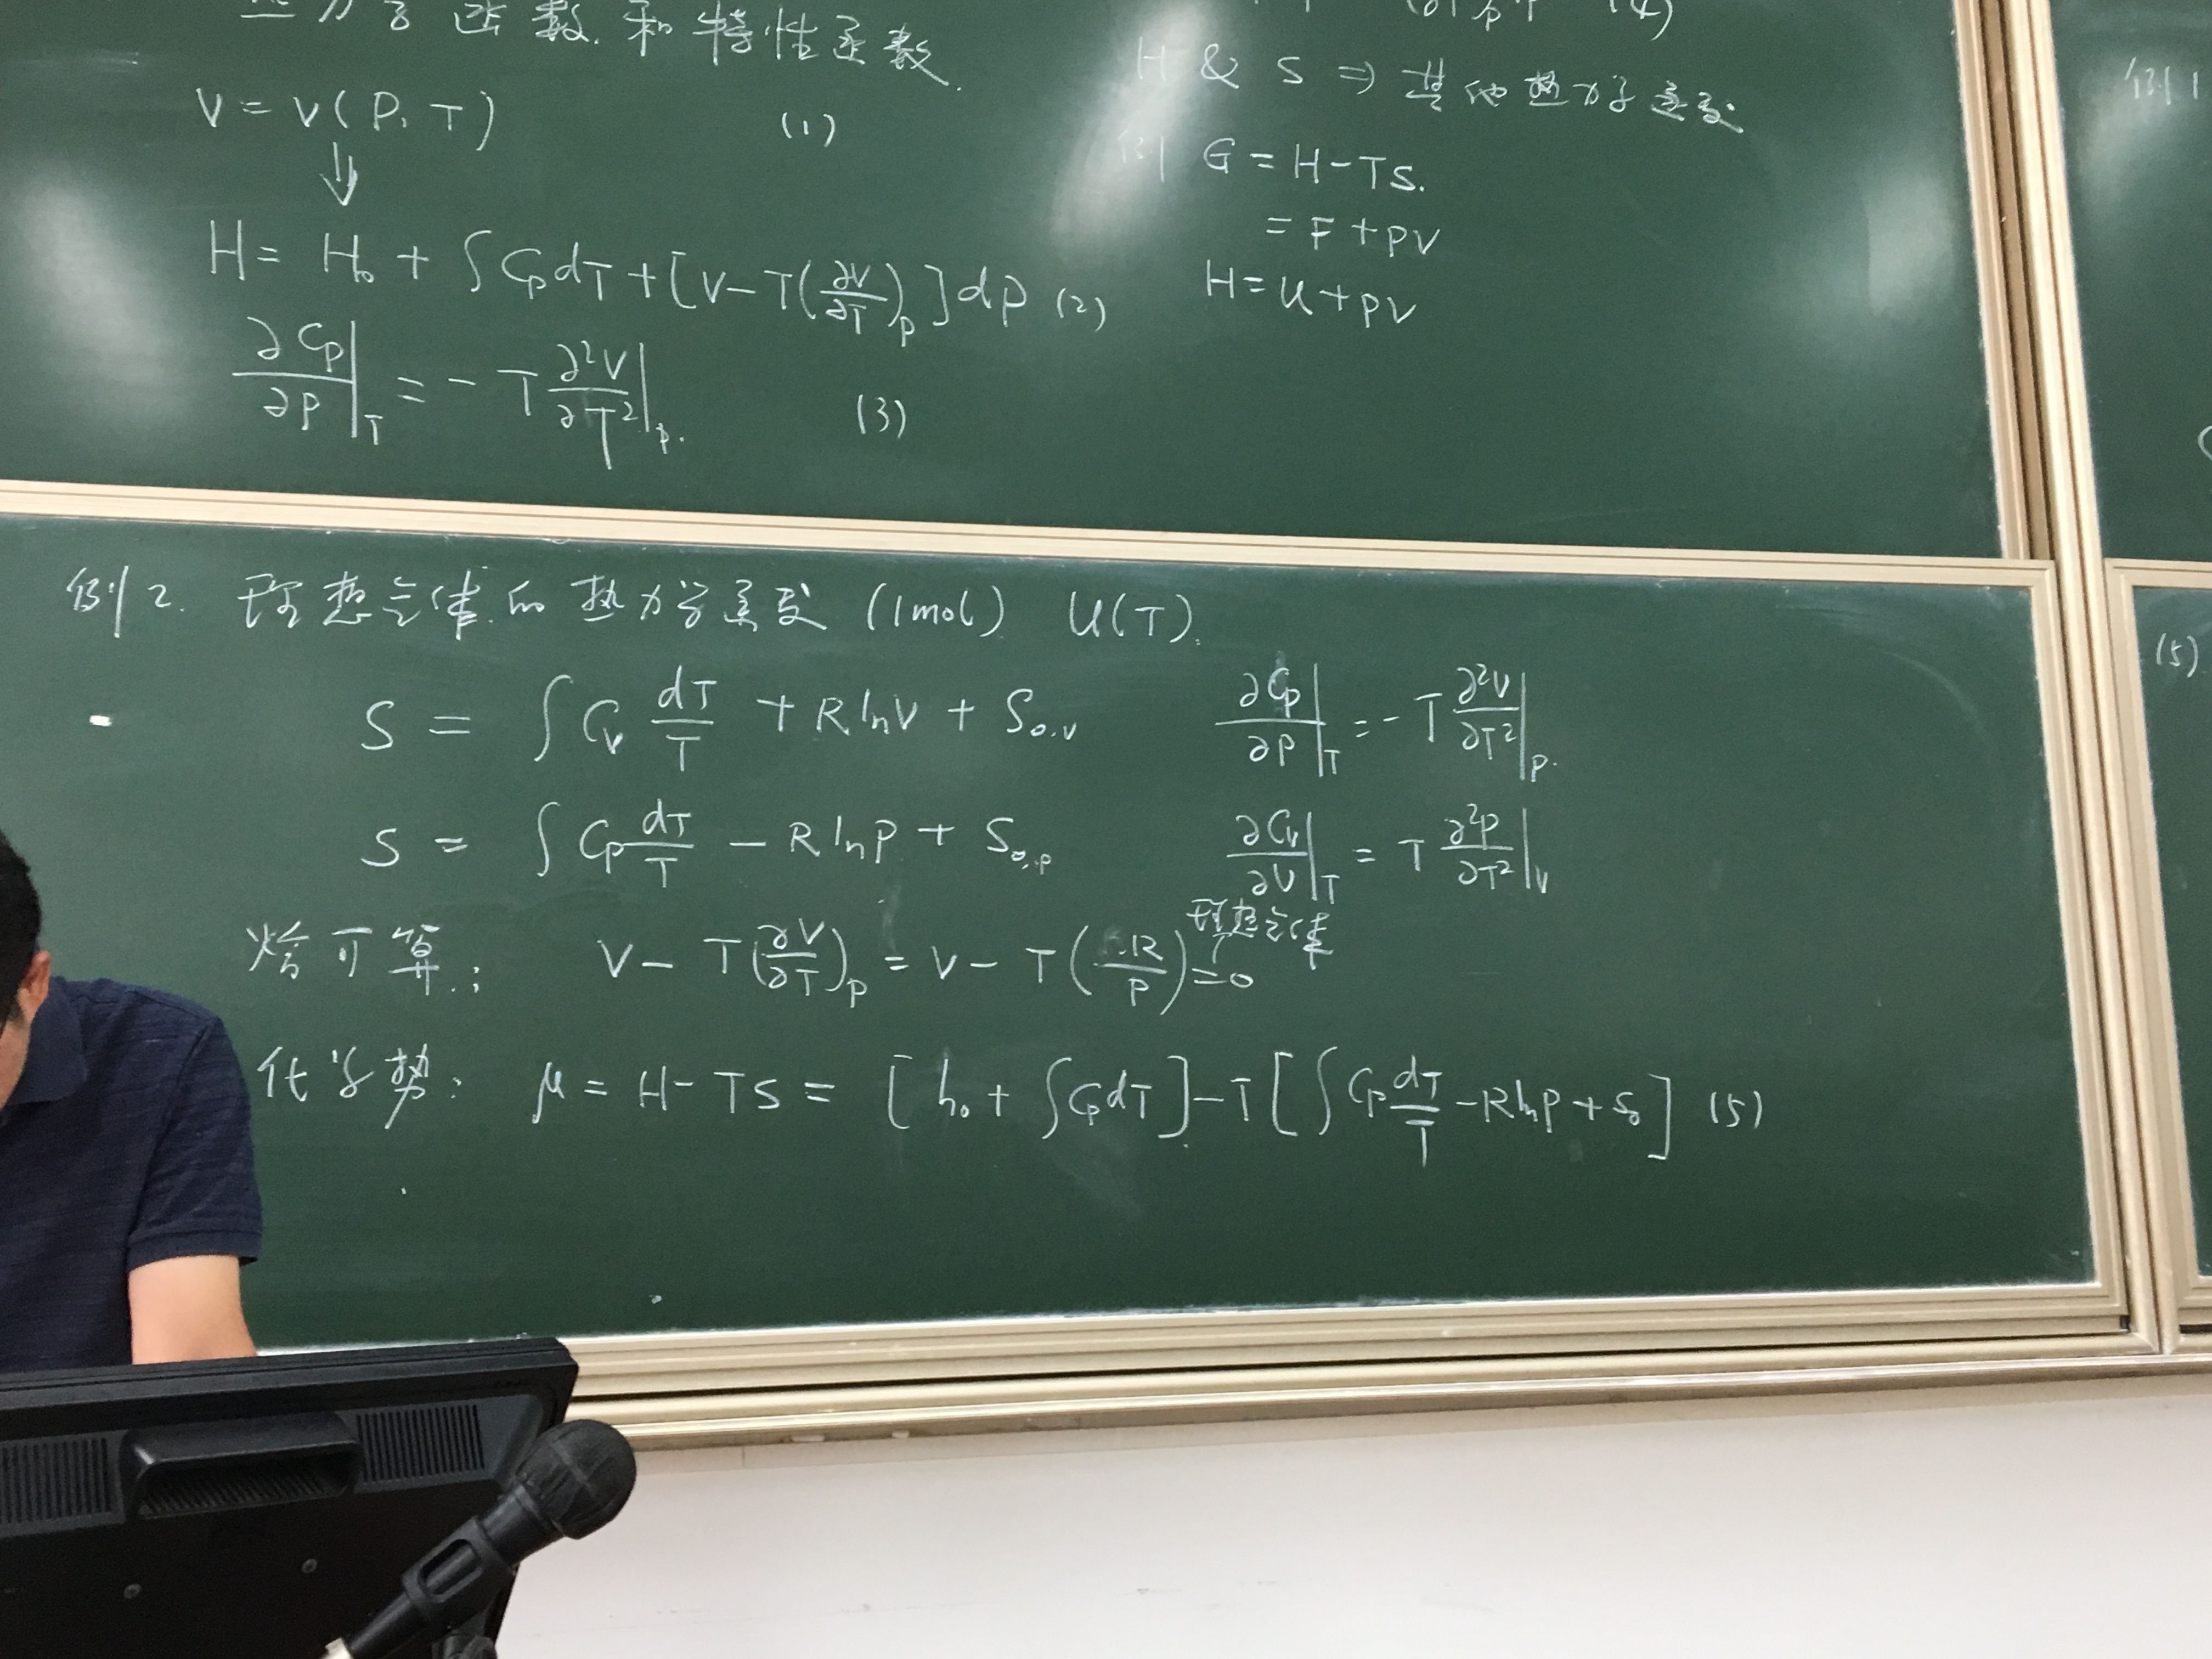 热力学函数和特性函数.
V = V(P, T) (1)
⇓
H = H₀ + ∫ Cp dT + [V − T(∂V/∂T)p] dp (2)
∂Cp/∂P|T = − T ∂²V/∂T²|p. (3)
(4)
H & S ⇒ 其他热力学函数
例 G = H − TS.
= F + PV
H = U + PV
例1
例2. 理想气体的热力学函数 (1mol) U(T).
S = ∫ Cv dT/T + R ln V + S₀,v ∂Cp/∂P|T = − T ∂²V/∂T²|p.
S = ∫ Cp dT/T − R ln P + S₀,p ∂Cv/∂V|T = T ∂²P/∂T²|v
理想气体
焓可算.: V − T(∂V/∂T)p = V − T(R/P) = 0
化学势: μ = H − TS = [h₀ + ∫ Cp dT] − T[∫ Cp dT/T − R ln P + S₀] (5)
(5)